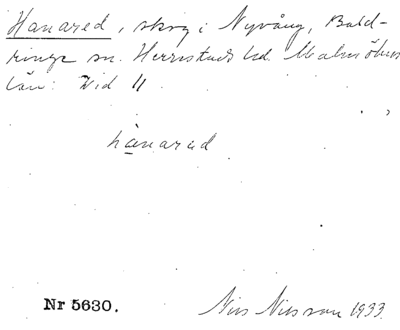 Hanared, skog i Nyvång, Bald-
ringe sn. Herrestads hd. Malmöhus
län: Vid 11
hanarad
Nr 5630.
Nils Nilsson 1933.